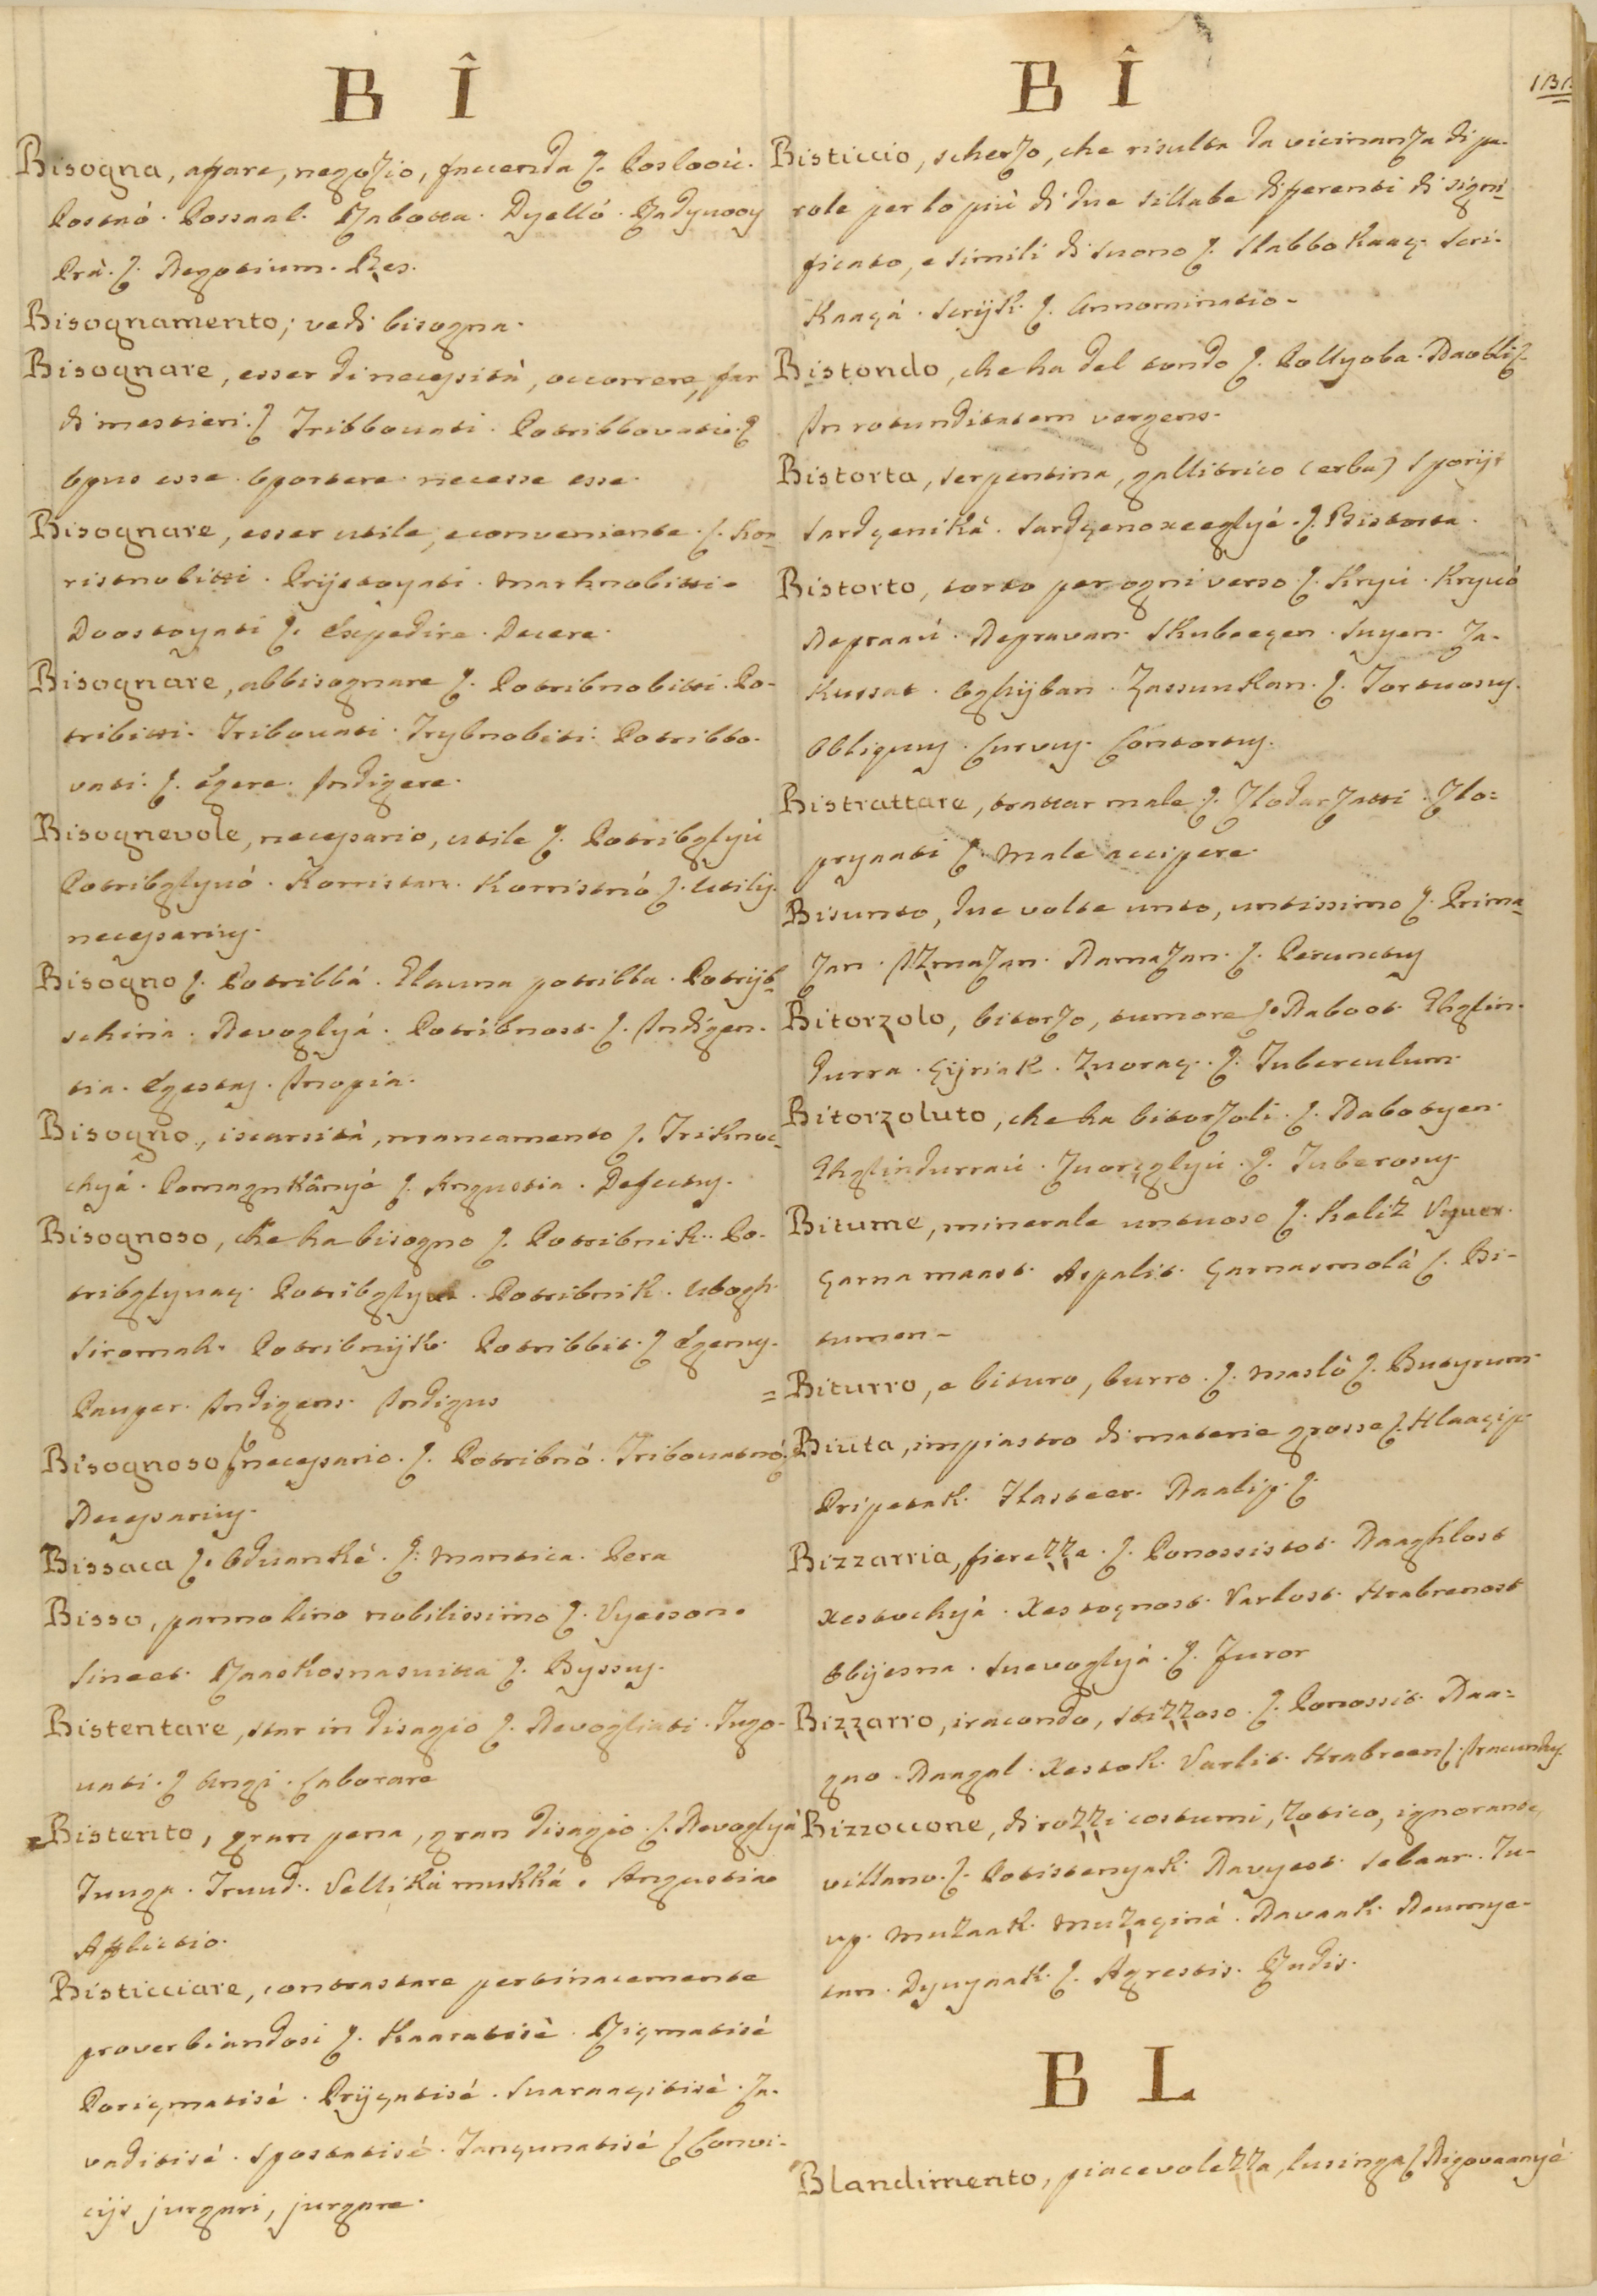 B Î
Bisogna, affare, negozio, faccenda ſ. Poslooù.
Posnó. Possaal. Rabotta. Dyelló. Nadynooy
Prà. ſ. Negotium. Res.
Bisognamento; vedi bisogna.
Bisognare, esser di necessità, occorrere, far
di mestieri. ſ Tribbouati. Potribbovatie. ſ
Opus esse. Oportere. necesse esse.
Bisognare, esser utile, e conveniente. ſ. Kor=
ristnobitti. Prijstoyati. Marknobitti.
Doostoyati ſ. Expedire. Decere.
Bisognare, abbisognare ſ. Potribnobitti. Po-
tribitti. Tribouati. Trybnobiti. Potribbo-
vati. ſ. Egere. Indigere.
Bisognevole, necessario, utile ſ. Potribglyú
Potribglyuó. Korristan. Korristnó ſ. Utilis.
necessarius.
Bisogno ſ. Potribbá. Elauna potribba. Potryb=
schina. Nevoglyá. Potribnost. ſ. Indigen-
tia. Egestas. Inopia.
Bisogno, iscarsità, mancamento ſ. Triknoc=
chyá. Pomagnkânyé ſ. Angustia. Defectus.
Bisognoso, che ha bisogno ſ. Potribnik. Po-
tribglyuaç. Potribnik. Ubogh.
Siromah. Potribnijk. Potribbit. ſ Egenus.
Pauper. Indigens. Indigus
Bisognoso necessario. ſ. Potribnó. Tribouatnó. ſ
Necessarius.
Bissaca ſ. Oduanké. ſ. Mantica. Pera
Bisso, panno lino nobilissimo ſ. Vyesson.
Sineet. Raaskosnasuitta ſ. Byssus.
Bistentare, star in disagio ſ. Nevogliati. Tugo-
uati. ſ Angi. Laborare
Bistento, gran pena, gran disagio. ſ. Nevoglyá
Tuuga. Truud. Velliká mukká. Angustiae
Afflictio.
Bisticciare, contrastare pertinacemente
proverbiandosi ſ. Kaaratisé. Riçmatisé
Poriçmatisé. Prijçatisé. Suaraaçitisé. Za-
vaditisé. Spostatisé. Tançunatisé ſ Convi-
cijs jurgari, jurgare.
B Î
131
Bisticcio, scherzo, che risulta da vicinanza di pa-
role per lo più di due sillabe differenti di signi-
ficato, e simili di suono ſ. Slabbokaaç. Scri-
kaaçá. Scrijk. ſ. Annominatio.
Bistondo, che ha del tondo ſ. Pollyoba. Naobli ſ.
In rotunditatem vergens.
Bistorta, serpentina, gallitrico (erba) Sporijs
Sardçeniká. Sardçenoxeeglyé. ſ. Bistorta.
Bistorto, torto per ogni verso. ſ. Kryú. Kryuó
Nepraaú. Nepravan. Skubeeçen. Suyen. Za-
kussat. Oghijban. Zassunkan. ſ. Tortuosus.
Obliquus. Curvus. Contortus.
Bistrattare, trattar male ſ. Zlodarzatti. Zlo=
pryaati ſ. Male accipere.
Bisunto, due volte unto, untissimo ſ. Prima=
zan. Izmazan. Namazan. ſ. Perunctus
Bitorzolo, bitorzo, tumore ſ. Naboot. Ghglin-
durra. Çijriak. Zuoraç. ſ. Tuberculum.
Bitorzoluto, che ha bitorzoli. ſ. Nabotyen.
Ghglindurraú. Zuorçglyú. ſ. Tuberosus.
Bitume, minerale untuoso ſ. Keliz Vyuer.
Çarna maast. Aspalit. Çarnasmolá ſ. Bi-
tumen.
=Biturro, e bituro, burro. ſ. Masló ſ. Butyrum.
Biuta, impiastro di materie grosse ſ. Klaaçip
Pripetak. Flasteer. Naalip. ſ.
Bizzarria, fierezza. ſ. Ponossistot. Naaghlost
Xestochyá. Xestoçnost. Varlost. Hrabrenost
Obijesna. Suevoglyá. ſ. Furor
Bizzarro, iracondo, stizzoso. ſ. Ponossit. Naa=
gno. Naagal. Xestok. Varlit. Hrabreen ſ. Iracundus.
Bizzoccone, di rozzi costumi, zotico, ignorante,
villano. ſ. Potistenyak. Navyest. Sebaar. Tu-
up. Muzaak. Muzaçiná. Navaak. Neumye-
tan. Dyuyaak. ſ. Agrestis. Rudis.
B L
Blandimento, piacevolezza, lusinga ſ Nigovaanyé